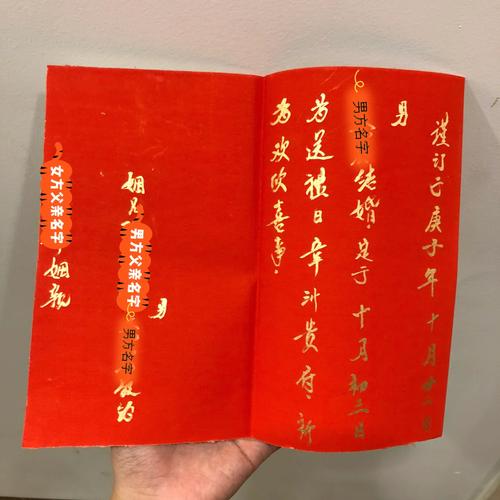 谨订于庚子年十月廿二日
男 男方名字 结婚、是于十月初二日
为送礼日幸汁贵府、新
为欢欣喜事、
男 男方名字 敬为
姻兄 男方父亲名字
女方父亲名字 姻亲